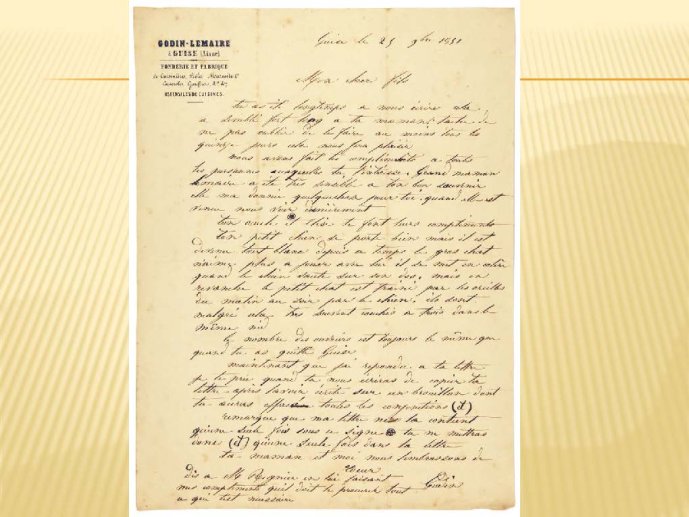 GODIN-LEMAIRE
à GUISE (Aisne)
FONDERIE ET FABRIQUE
USTENSILES DE CUISINES
Guise le 25 9bre 1851
Mon cher fils
tu as été longtemps a nous écrire cela
a semblé fort long a ta maman tache de
ne pas oublier de le faire au moins tous les
quinze jours cela nous fera plaisir
nous avons fait les compliments a toutes
les personnes auxquelles tu Grand maman
Lemaire a été très sensible a ton bon souvenir
elle ma donné quelquechose pour toi quand elle est
venue nous voir dernièrement
ton oncle et Elise te font leurs compliments
ton petit chien se porte bien mais il est
devenu tout blanc depuis le gros chat
n'aime plus a jouer avec lui il se met en colère
quand le chien saute sur son dos, mais en
revanche le petit chat est trainé par les oreilles
du matin au soir par le chien. ils sont
malgré cela très souvent couchés a trois dans le
même
le nombre des ouvriers est toujours le même que
quand tu as quitté Guise
maintenant que j'ai répondu a ta lettre
je te prie quand tu nous écriras de copier ta
lettre après l'avoir écrite sur un brouillon dont
tu auras effacé toutes les conjonctions (et)
remarque que ma lettre ne la contient
qu'une seule fois sous ce signe tu ne mettras
donc (et) qu'une seule fois dans ta lettre
ta maman et moi nous t'embrassons de
coeur
Godin
dis a Mr en lui faisant
nos compliments qu'il doit te procurer tout
ce qui t'est nécessaire